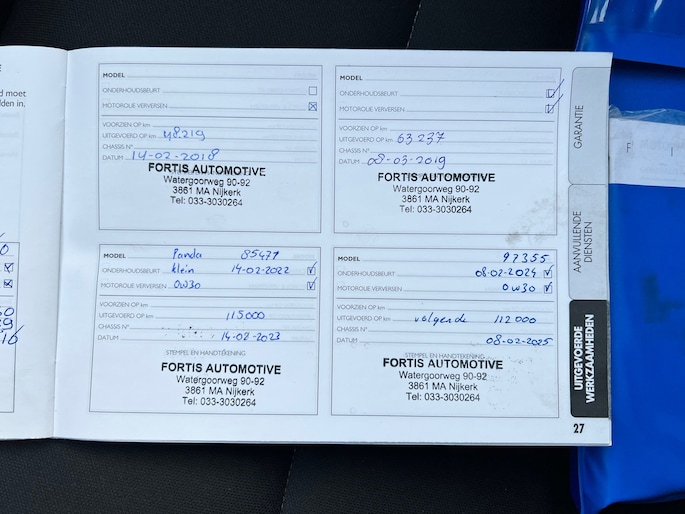 d moet
lden in.
MODEL
ONDERHOUDSBEURT
MOTOROLIE VERVERSEN
VOORZIEN OP km
UITGEVOERD OP km 48.219
CHASSIS N°
DATUM 14-02-2018
FORTIS AUTOMOTIVE
Watergoorweg 90-92
3861 MA Nijkerk
Tel: 033-3030264
MODEL
ONDERHOUDSBEURT
MOTOROLIE VERVERSEN
VOORZIEN OP km
UITGEVOERD OP km 63.237
CHASSIS N°
DATUM 08-03-2019
FORTIS AUTOMOTIVE
Watergoorweg 90-92
3861 MA Nijkerk
Tel: 033-3030264
MODEL Panda 85471
ONDERHOUDSBEURT klein 14-02-2022
MOTOROLIE VERVERSEN 0w30
VOORZIEN OP km
UITGEVOERD OP km 115000
CHASSIS N°
DATUM 14-02-2023
STEMPEL EN HANDTEKENING
FORTIS AUTOMOTIVE
Watergoorweg 90-92
3861 MA Nijkerk
Tel: 033-3030264
MODEL 97355
ONDERHOUDSBEURT 08-02-2024
MOTOROLIE VERVERSEN 0w30
VOORZIEN OP km
UITGEVOERD OP km volgende 112000
CHASSIS N°
DATUM 08-02-2025
STEMPEL EN HANDTEKENING
FORTIS AUTOMOTIVE
Watergoorweg 90-92
3861 MA Nijkerk
Tel: 033-3030264
GARANTIE
AANVULLENDE
DIENSTEN
UITGEVOERDE
WERKZAAMHEDEN
27